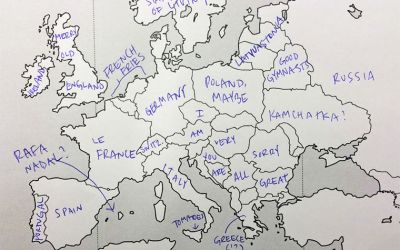 OF UTILITY
MERRY
OLD
ENGLAND
IRELAND
FRENCH
FRIES
GERMANY
POLAND,
MAYBE
LATVIASTONIA
GOOD
GYMNASTS
RUSSIA
KAMCHATKA?
I
AM
VERY
SORRY
YOU
ARE
ALL
GREAT
LE
FRANCE
SWITZ.
ITALY
RAFA
NADAL?
PORTUGAL
SPAIN
TOMATOES
GREECE
(!?)